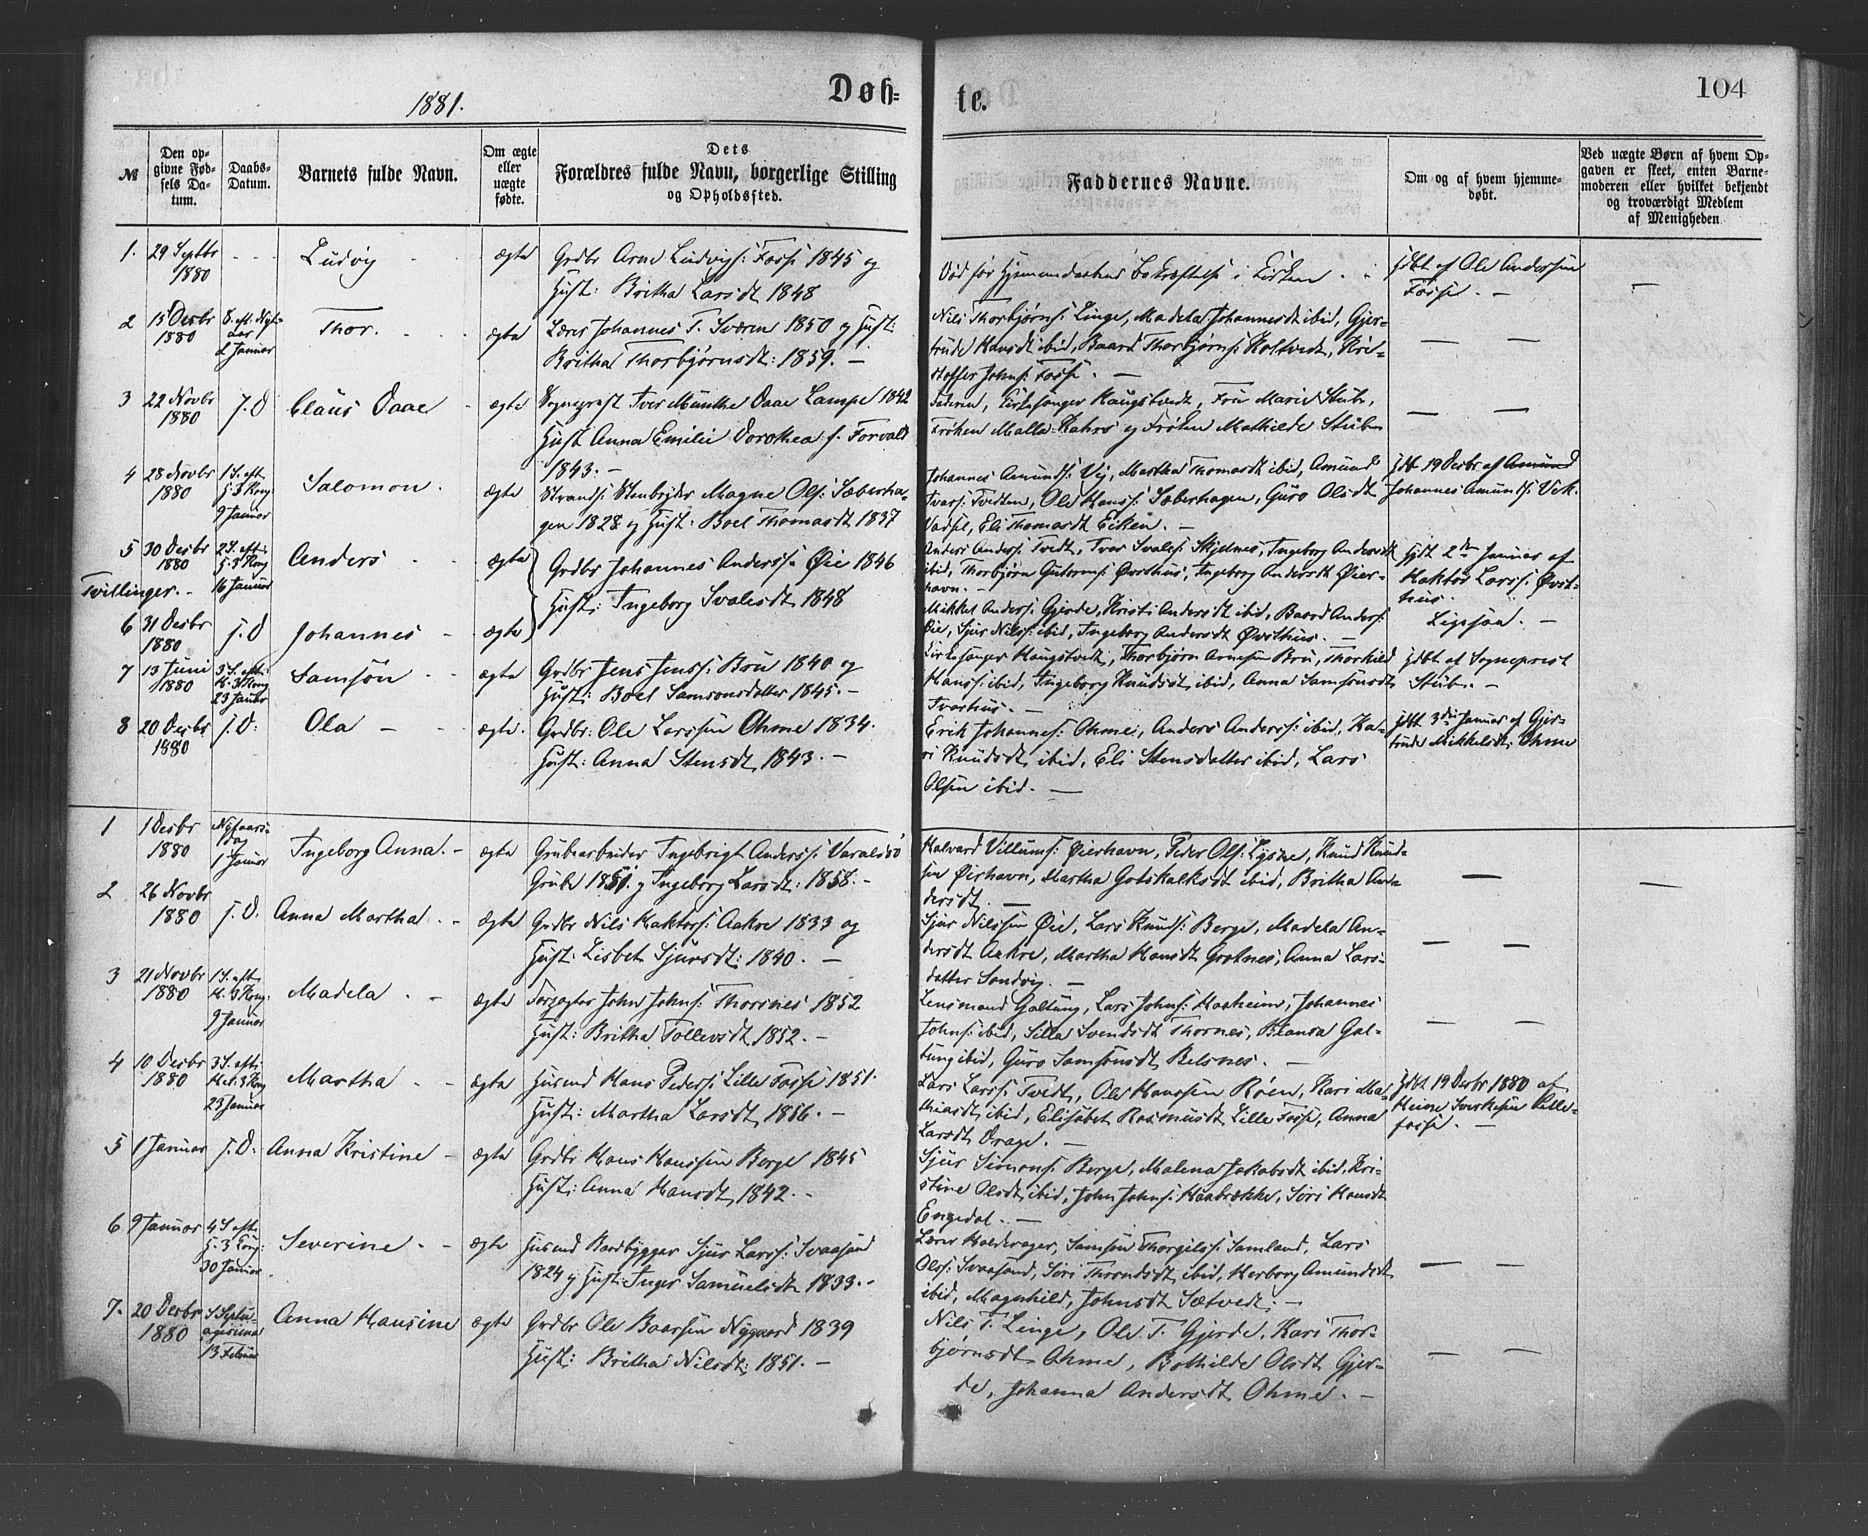 1881.
Døb-
te.
104
№
Den op-
givne Fød-
sels Da-
tum.
Daabs-
Datum.
Barnets fulde Navn.
Om ægte
eller
uægte
fødte.
Dets
Forældres fulde Navn, borgerlige Stilling
og Opholdssted.
Faddernes Navne.
Om og af hvem hjemme-
døbt.
Ved uægte Børn af hvem Op-
gaven er skeet, enten Barne-
moderen eller hvilket bekjendt
og troværdigt Medlem
af Menigheden
1. 29 Septbr
1880
Ludvig
ægte
Grdbr Arne Ludvigs: Fosse 1845 og
Hust: Britha Larsdt 1848
Død før Hjemmedaabens Bekræftelse i Kirken
hjdbt af Ole Anderssen
Fosse. —
2 15 Desbr
1880
8. eft. Nyt-
aar
2 Januar
Thor.
ægte
Lærer Johannes T. Sværen 1850 og Hust:
Britha Thorbjørnsdt: 1859. —
Nils Thorbjørns: Linge, Madela Johannesdt ibid, Gjer-
trude Hansdt ibid, Baard Thorbjørns: Holtvedt, Kri-
stoffer Johns: Fosse. —
3 22 Novbr
1880
J. D
Claus Daae
ægte
Sogneprest Iver Munthe Daae Lampe 1842
Hust Anna Emilie Dorothea f. Forvald
1843. —
Faderen, Kirkesanger Haugstvedt, Fru Marie Stub,
Frøken Malla Kahrs og Frøken Mathilde Stub
4 28 Novbr
1880
1 S. eft.
H 3 Kong:
9 Januar
Salomon.
ægte
Strands: Stenbryder Magne Ols: Sæberha-
gen 1828 og Hust: Boel Thomasdt 1837
Johannes Amunds: Vig, Martha Thomasdt ibid, Amund
Ivars: Tvedten, Ole Hanss: Sæberhagen, Guro Olsdt
Vadsel, Eli Thomasdt Eiken. —
hjdbt 19 Desbr af Amund
Johannes Amunds: Vik.
5 30 Desbr
1880
2 S. eft.
H. 3 Kong
16 Januar
Anders
ægte
Grdbr Johannes Anderss: Øie 1846
Hust: Ingeborg Svalesdt 1848
Anders Anders: Tvedt, Ivar Svales: Skjelnes, Ingeborg Andersdt
ibid, Thorbjørn Gutorms: Øvsthus, Ingeborg Andersdt Øier-
havn. —
hjdbt 2den Januar af
Haktor Larss: Øvst-
hus.
Tvillinger. -
6 31 Desbr
1880
J. D
Johannes
ægte
Mikkel Anders: Gjerde, Kristi Andersdt ibid, Baard Anders:
Øie, Sjur Nils: ibid, Ingeborg Andersdt Øvsthus. —
Ligesaa. —
7 13 Juni
1880
3 S. eft.
H. 3 Kong
23 Januar
Samson
ægte
Grdbr Jens Jenss: Bru 1840 og
Hust: Boel Samsonsdatter 1845. —
Kirkesanger Haugstvedt, Thorbjørn Arnesen Bru, Thorkild
Hanss: ibid, Ingeborg Knudsdt ibid, Anna Samsonsdt
Tvarhus. —
hjdbt af Sogneprest
Stub. —
8 20 Desbr
1880
J. D.
Ola —
ægte.
Grdbr: Ole Larssen Ohme 1834.
Hust: Anna Stensdt, 1843. —
Erik Johannes: Ohme, Anders Anderss: ibid, Ka-
ri Knudsdt ibid, Eli Stensdatter ibid, Lars
Olsen ibid. —
hjdbt 3die Januar af Gjer-
trude Mikkelsdt: Ohme
1 1 Desbr
1880
Nytaars-
Dag
1 Januar
Ingeborg Anna. -
ægte
Grubearbeider Ingebrigt Anderss: Varaldsø
Grube 1851. og Ingeborg Larsdt: 1858. —
Halvard Villums: Øierhavn, Peder Ols: Lysne, Knud Knud-
sen Øierhavn, Martha Gotskalksdt ibid, Britha An-
dersdt. —
2 26 Novbr
1880
J. D.
Anna Martha. -
ægte
Grdbr Nils Haktors: Aakre 1833 og
Hust: Lisbet Sjursdt: 1840. —
Sjur Nilssen Øie, Lars Knuds: Berge, Madela An-
dersdt Aakre, Martha Hansdt Grotnes, Anna Lars-
datter Sandvig. —
3 21 Novbr
1880
1 S. eft.
H. 3 Kong.
9 Januar
Madela. -
ægte
Forpagter John Johns: Thorsnes 1852
Hust: Britha Tollevsdt 1852. —
Lensmand Galtung, Lars Johns: Haaheim, Johannes
Johns: ibid, Silla Svendsdt Thornes, Blanda Gal-
tung ibid, Guro Samsonsdt Belsnes. —
4 10 Desbr
1880
3 S. eft.
H. 3 Kong
23 Januar
Martha -
ægte
Husmd Hans Peders: Lille Fosse 1851.
Hust: Martha Larsdt, 1856. —
Lars Larss: Tvedt, Ole Hanssen Røen, Kari Ma-
thiasdt ibid, Elisabet Rasmusdt Lille Fosse, Anna
Larsdt Drage. —
hjdbt 19 Desbr 1880 af
Heine Sverkesen Lille-
fosse. —
5 1 Januar J. D. Anna Kristine - ægte
Grdbr Hans Hanssen Berge 1845
Hust: Anna Hansdt, 1842. —
Sjur Simons: Berge, Malena Jakobsdt ibid, Kri-
stine Olsdt, ibid, John Johns: Haabrække, Siri Hansdt
Engedal. —
6 9 Januar
4 S. eft.
H. 3 Kong:
30 Januar
Severine. -
ægte
Husmd Baadbygger Sjur Larss: Svaasand
1824 og Hust: Inger Samuelsdt 1833. —
Lærer Halderager, Samson Thorgils: Samland, Lars
Ols: Svaasand, Siri Throndsdt ibid, Herborg Amundsdt
ibid, Magnhild, Johnsdt Sætvedt; —
7. 20 Desbr
1880
S Septu-
agesima
13 Februar
Anna Hansine
ægte
Grdbr Ole Baarsen Nygaard 1839
Hust: Britha Nilsdt: 1851. —
Nils T. Linge, Ole T. Gjerde, Kari Thor-
bjørnsdt Ohme, Bothilde Olsdt Gjer-
de, Johanna Andersdt Ohme. —